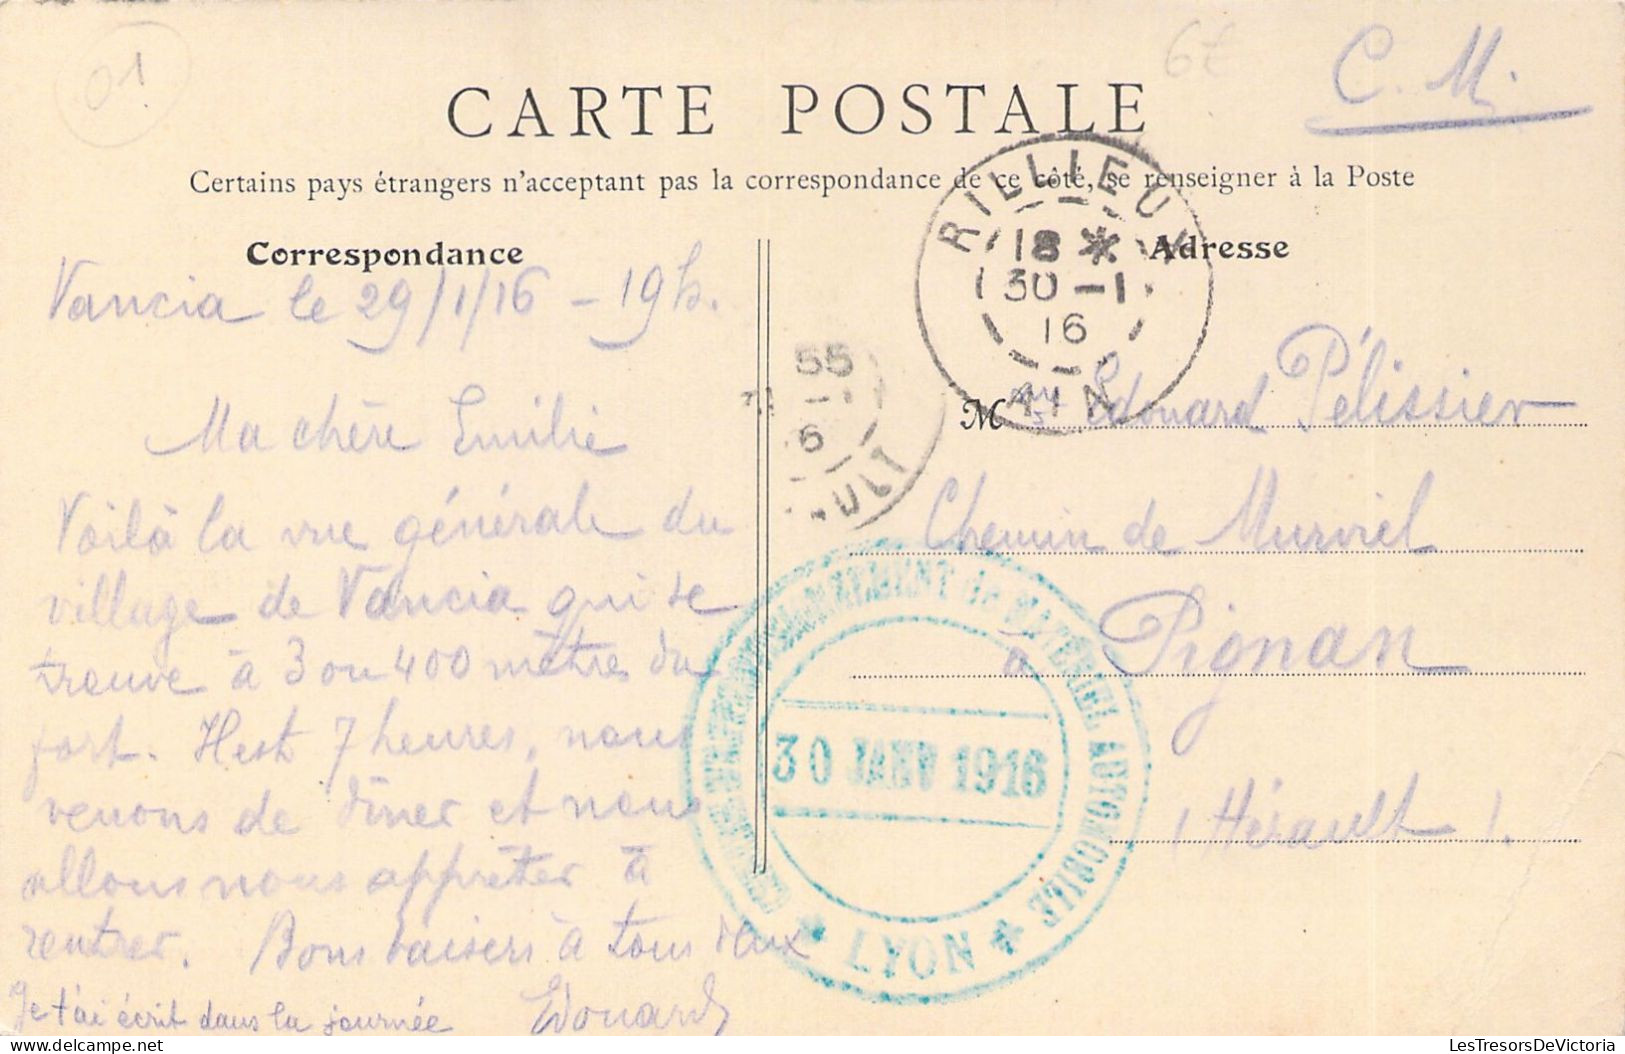 01
6€
C. M.
CARTE POSTALE
Certains pays étrangers n'acceptant pas la correspondance de ce côté, se renseigner à la Poste
Correspondance
Vancia le 29/1/16 - 19h.
Ma chère Emilie
Voilà la vue générale du
village de Vancia qui se
trouve à 3 ou 400 mètres du
fort. Il est 7 heures, nous
venons de dîner et nous
allons nous apprêter à
rentrer. Bons baisers à tous deux
Edouard
Je t'ai écrit dans la journée
RILLIEUX
18 *
30 -1
16
AIN
55
-1
6
ULT
Adresse
M Edouard Pélissier
Chemin de Murviel
à Pignan
(Hérault).
de MATÉRIEL AUTOMOBILE
30 JANV 1916
* LYON *
LesTresorsDeVictoria
delcampe.net